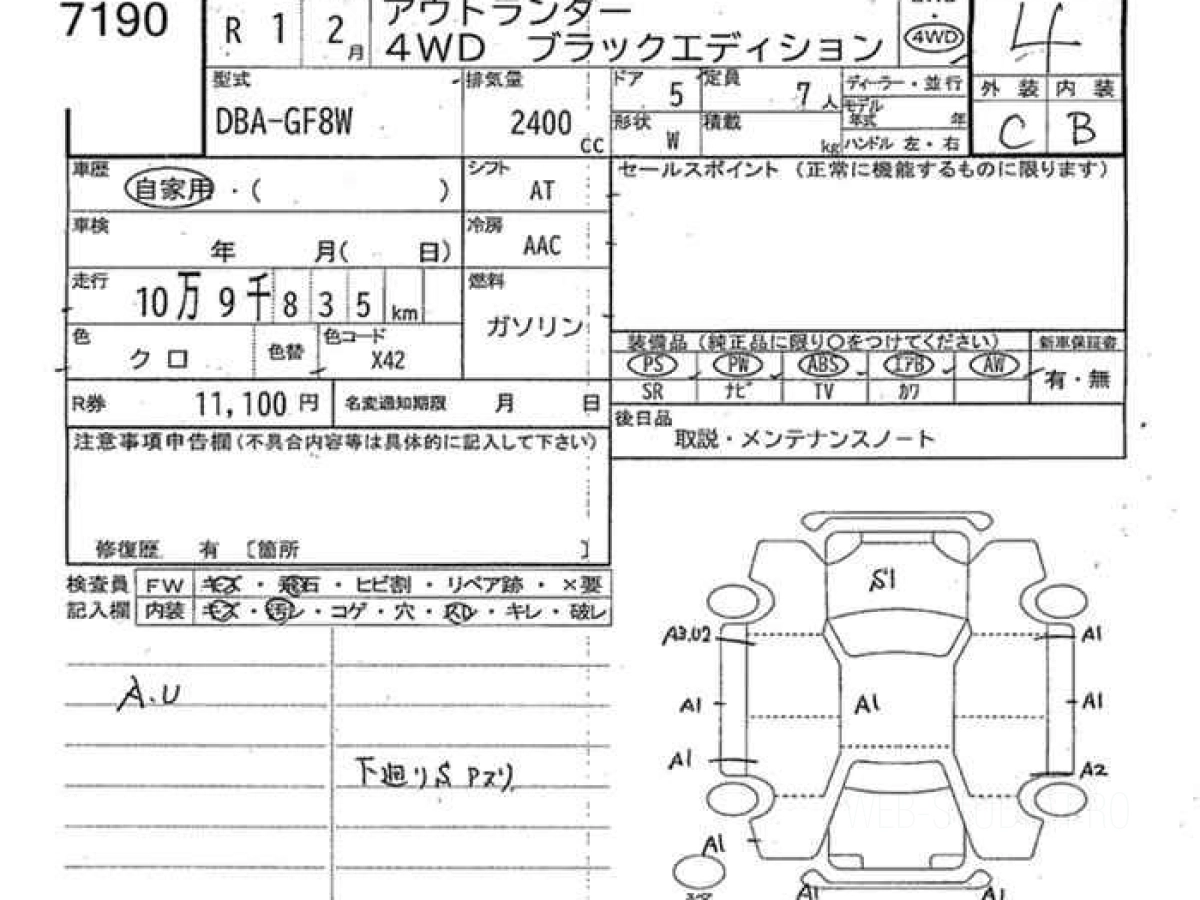 7190
R 1 2月
アウトランダー
4WD ブラックエディション
4WD
4
型式
DBA-GF8W
排気量
2400 cc
ドア 5
定員 7人
形状 W
積載 kg
ディーラー・並行
モデル年式 年
ハンドル 左・右
外装 内装
C B
車歴
自家用・( )
シフト
AT
セールスポイント (正常に機能するものに限ります)
車検
年 月( 日)
冷房
AAC
走行
10万9千835km
燃料
ガソリン
色
クロ
色替
色コード
X42
装備品 (純正品に限り○をつけてください)
新車保証書
PS PW ABS エアB AW
SR ナビ TV カワ
有・無
R券 11,100円
名変通知期限 月 日
後日品
取説・メンテナンスノート
注意事項申告欄(不具合内容等は具体的に記入して下さい)
修復歴 有 [箇所 ]
検査員
記入欄
FW キズ・飛石・ヒビ割・リペア跡・×要
内装 キズ・汚レ・コゲ・穴・スレ・キレ・破レ
A.U
下廻りS Pズリ
S1
A3.U2
A1
A1
A1
A1
A1
A2
A1
A1
A1